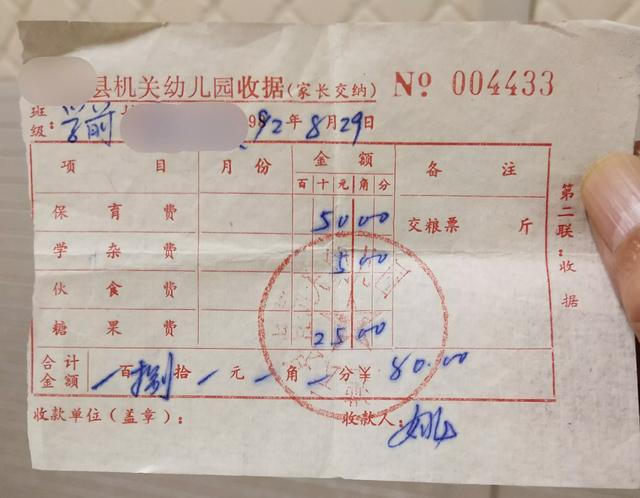 县机关幼儿园收据(家长交纳) Nº 004433
班级:学前 1992年8月29日
项目 月份 金额 备注
百十元角分
保育费 5000 交粮票 斤
学杂费 500
伙食费
糖果费 2500
合计金额 一百捌拾一元一角一分¥ 80.00
收款单位(盖章): 收款人: 姚
第二联:收据